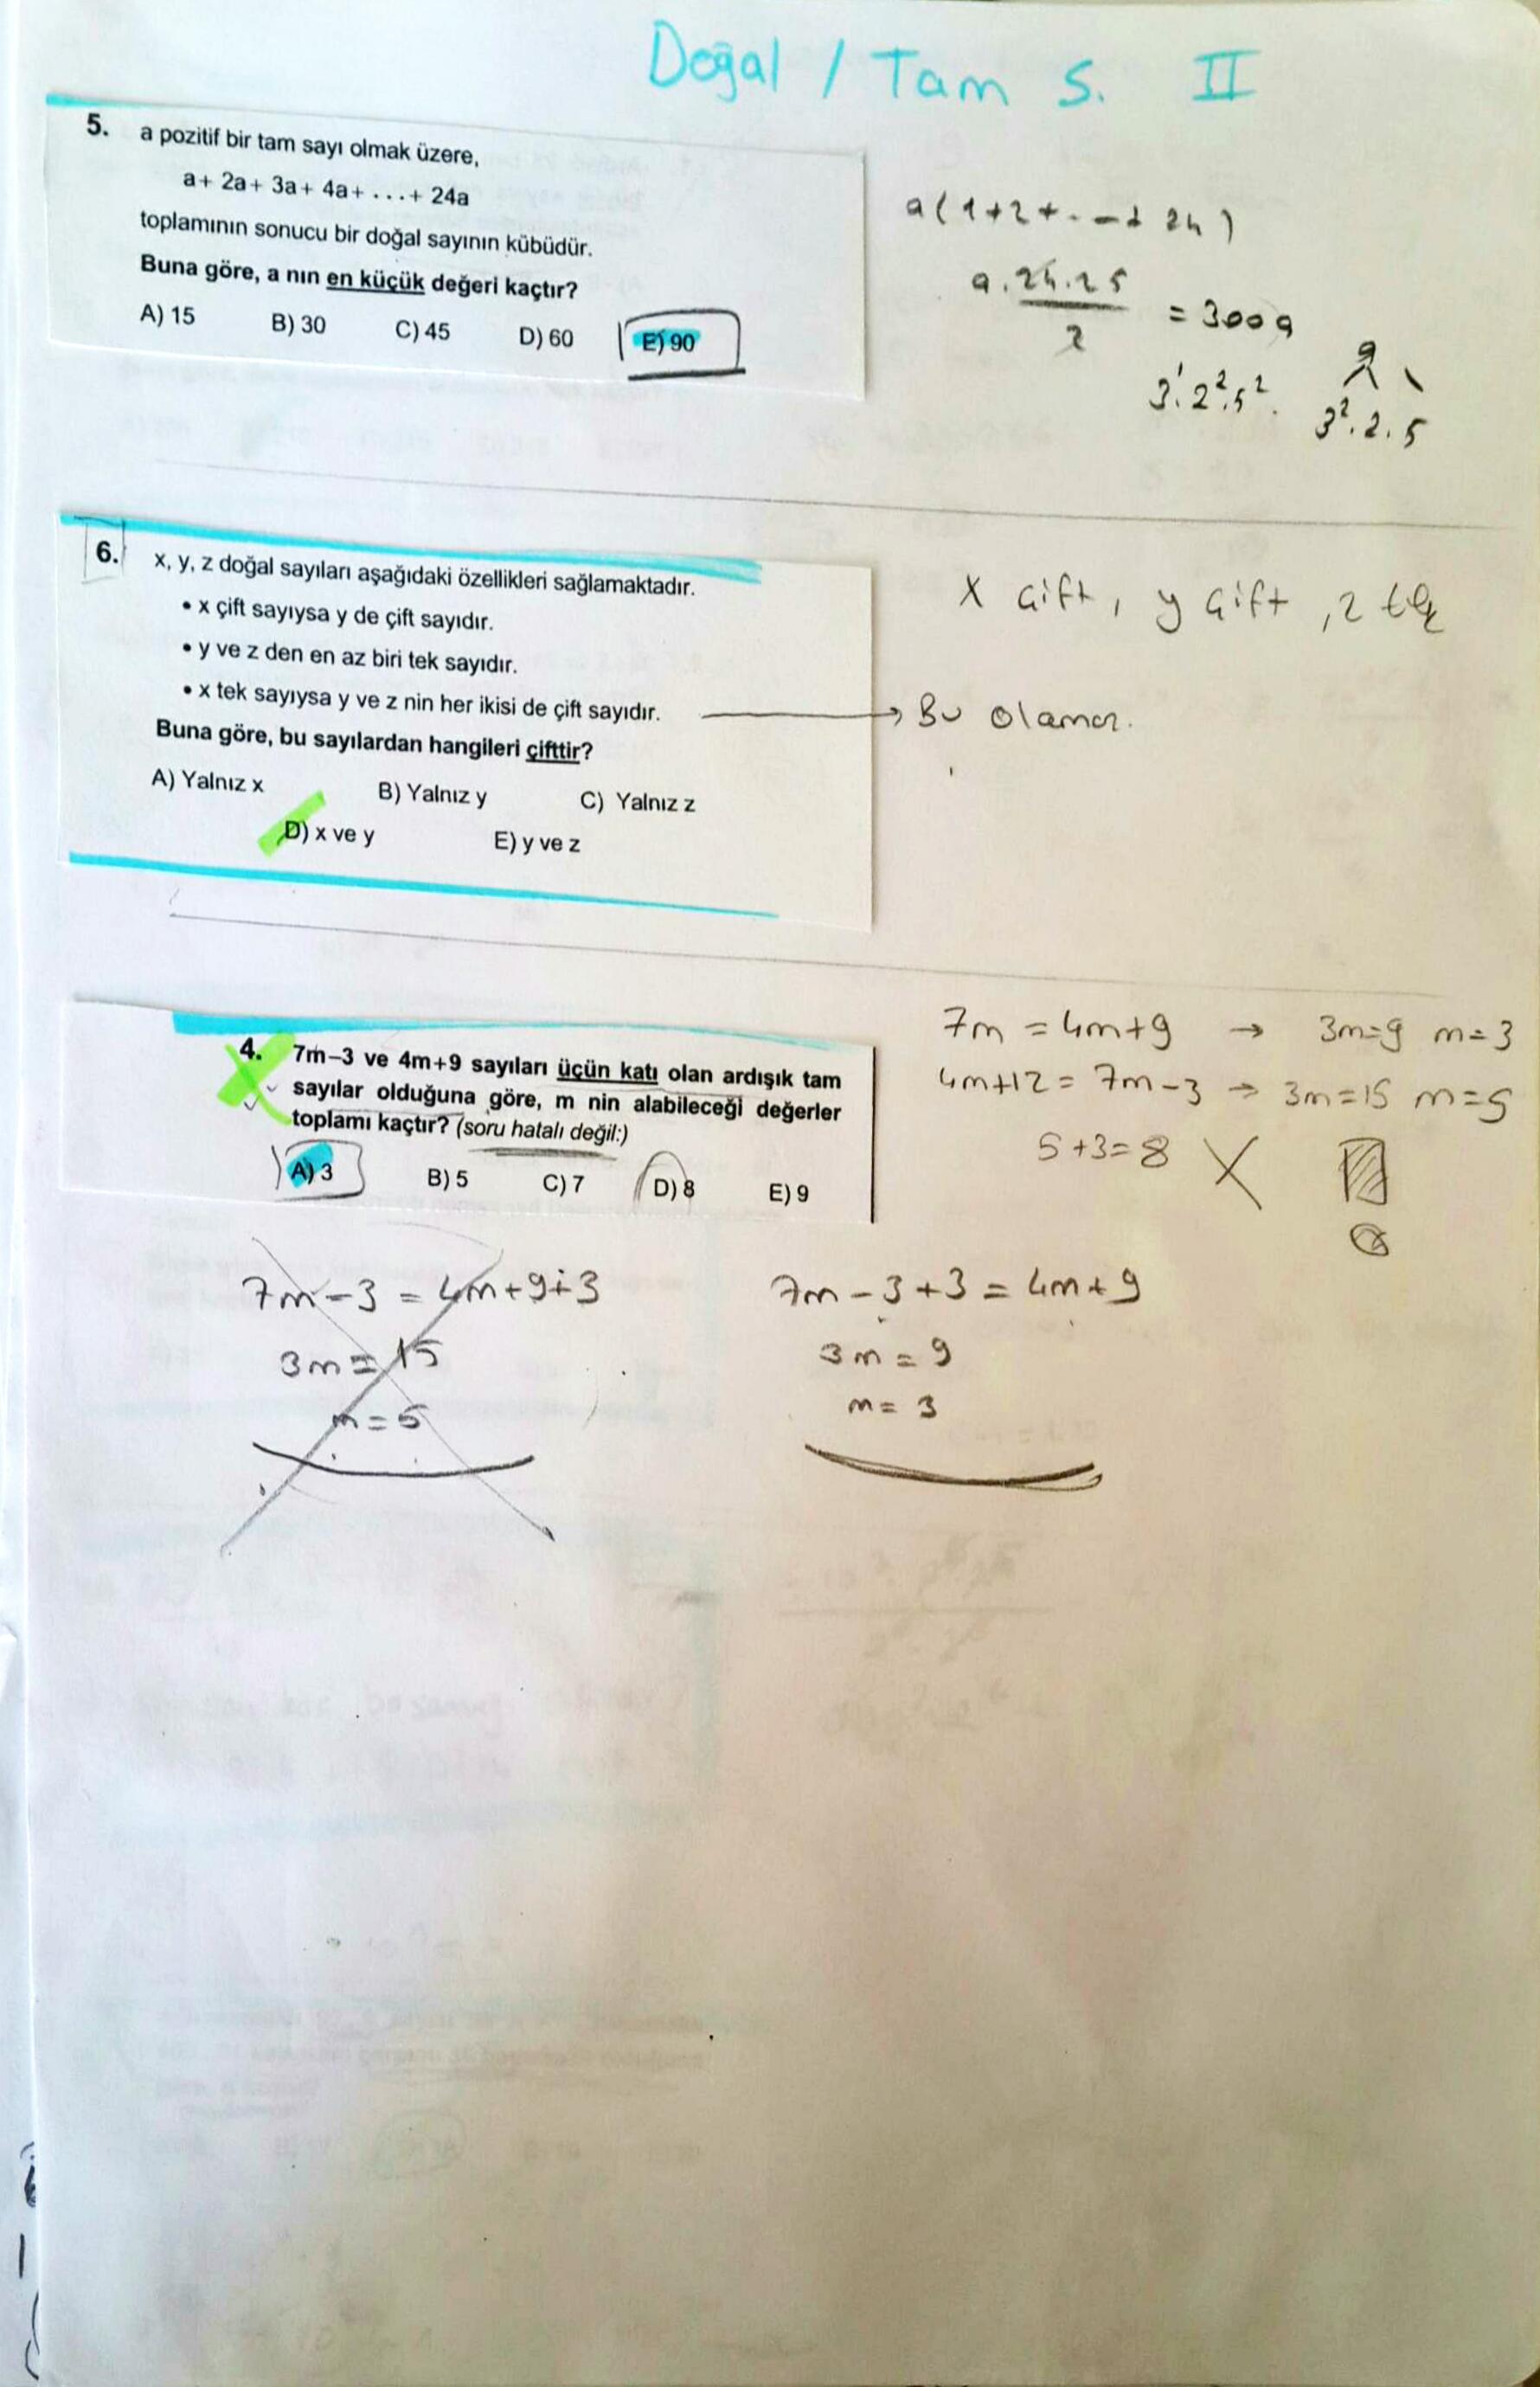 Doğal / Tam S. II
5. a pozitif bir tam sayı olmak üzere,
a+ 2a+ 3a+ 4a+ ...+ 24a
toplamının sonucu bir doğal sayının kübüdür.
Buna göre, a nın en küçük değeri kaçtır?
A) 15 B) 30 C) 45 D) 60 E) 90
a(1+2+...+24)
a.24.25
2
= 300a
3¹.2².5².
a
3².2.5
6. x, y, z doğal sayıları aşağıdaki özellikleri sağlamaktadır.
• x çift sayıysa y de çift sayıdır.
• y ve z den en az biri tek sayıdır.
• x tek sayıysa y ve z nin her ikisi de çift sayıdır.
Buna göre, bu sayılardan hangileri çifttir?
A) Yalnız x B) Yalnız y C) Yalnız z
D) x ve y E) y ve z
x çift, y çift, z tek
→ Bu olamaz.
4. 7m−3 ve 4m+9 sayıları üçün katı olan ardışık tam
sayılar olduğuna göre, m nin alabileceği değerler
toplamı kaçtır? (soru hatalı değil:)
A) 3 B) 5 C) 7 D) 8 E) 9
7m = 4m+9 → 3m=9 m=3
4m+12 = 7m−3 → 3m=15 m=5
5+3=8
7m−3 = 4m+9+3
3m = 15
m = 5
7m−3+3 = 4m+9
3m = 9
m = 3